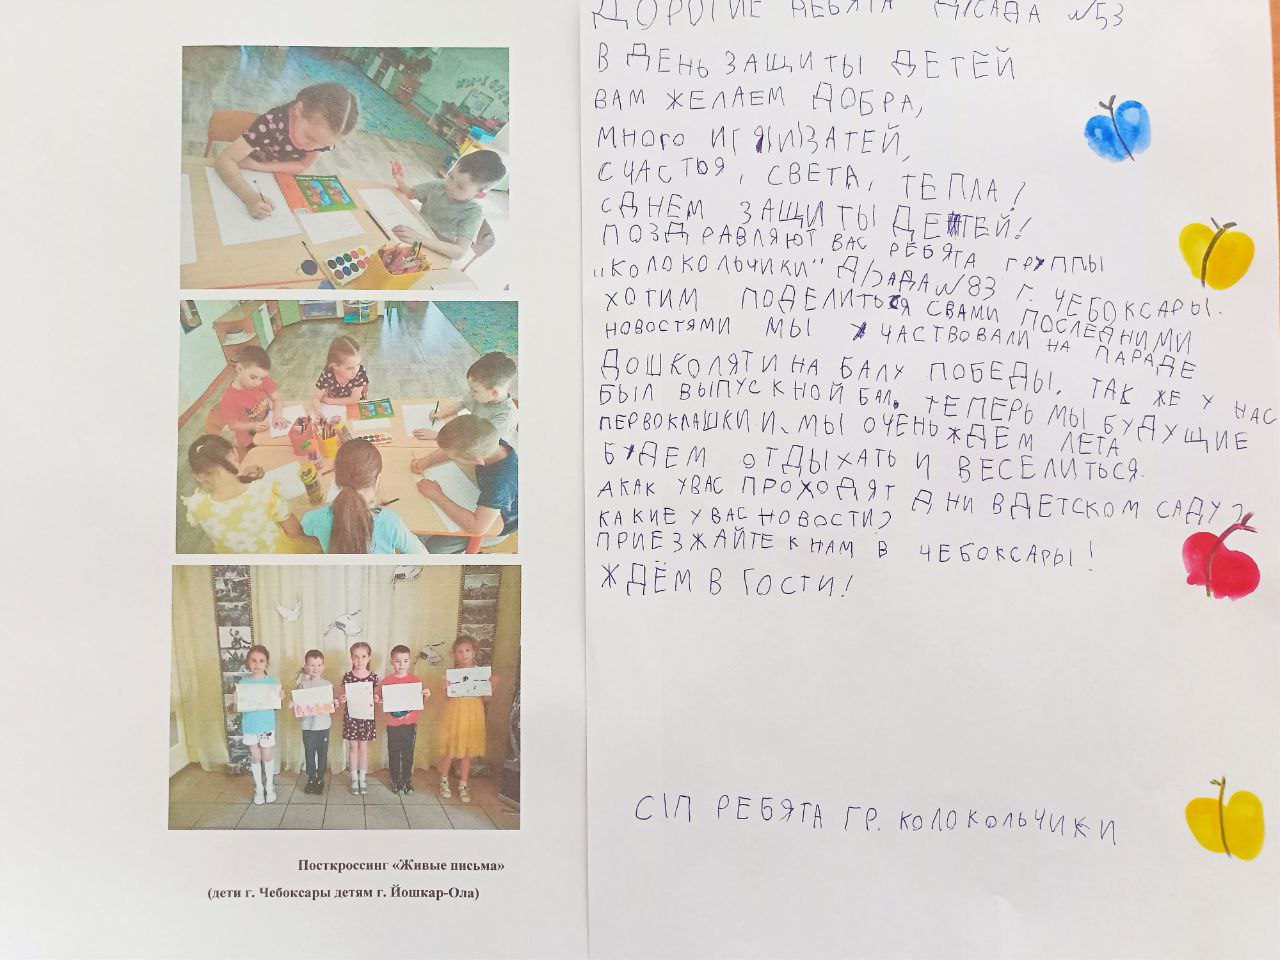 Посткроссинг «Живые письма»
(дети г. Чебоксары детям г. Йошкар-Ола)
ДОРОГИЕ РЕБЯТА Д/САДА №53
В ДЕНЬ ЗАЩИТЫ ДЕТЕЙ
ВАМ ЖЕЛАЕМ ДОБРА,
МНОГО
СЧАСТЬЯ, СВЕТА, ТЕПЛА!
С ДНЕМ ЗАЩИТЫ ДЕТЕЙ!
ПОЗДРАВЛЯЮТ ВАС РЕБЯТА ГРУППЫ
„КОЛОКОЛЬЧИКИ" Д/САДА №83 Г. ЧЕБОКСАРЫ.
ХОТИМ ПОДЕЛИТЬСЯ СВАМИ ПОСЛЕДНИМИ
НОВОСТЯМИ МЫ УЧАСТВОВАЛИ НА ПАРАДЕ
ДОШКОЛЯТ И НА БАЛУ ПОБЕДЫ. ТАК ЖЕ У НАС
БЫЛ ВЫПУСКНОЙ БАЛ. ТЕПЕРЬ МЫ БУДУЩИЕ
ПЕРВОКЛАШКИ И МЫ ОЧЕНЬ ЖДЕМ ЛЕТА
БУДЕМ ОТДЫХАТЬ И ВЕСЕЛИТЬСЯ.
АКАК УВАС ПРОХОДЯТ ДНИ ВДЕТСКОМ САДУ?
КАКИЕ УВАС НОВОСТИ?
ПРИЕЗЖАЙТЕ К НАМ В ЧЕБОКСАРЫ!
ЖДЁМ В ГОСТИ!
РЕБЯТА ГР. КОЛОКОЛЬЧИКИ